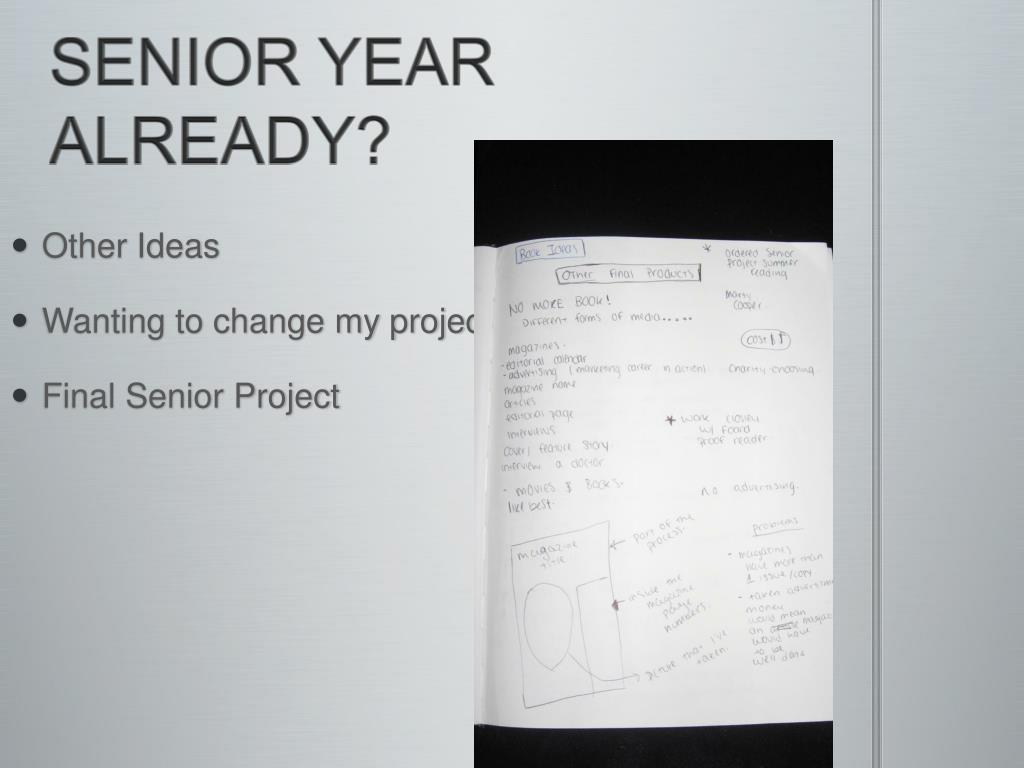 SENIOR YEAR
ALREADY?
• Other Ideas
• Wanting to change my projec
• Final Senior Project
Book Ideas
* ordered Senior
Project Summer
reading
Other Final Products
Marty
Cooper.
NO MORE BOOK!
Different forms of media.....
COST
magazines.
- editorial calendar
- advertising (marketing career in action). Charity choosing.
magazine name
articles
editorial page
interviews
* work closely
w/ Foard
Proof reader
cover/feature story.
interview a doctor
- movies & books.
like best.
no advertising.
part of the
process.
magazine
title
inside the
magazine
page
numbers.
picture that I've
taken.
problems
- magazines
have more than
1 issue/copy
- taken advertisem
money
would mean
an magaz
would have
to be
well done